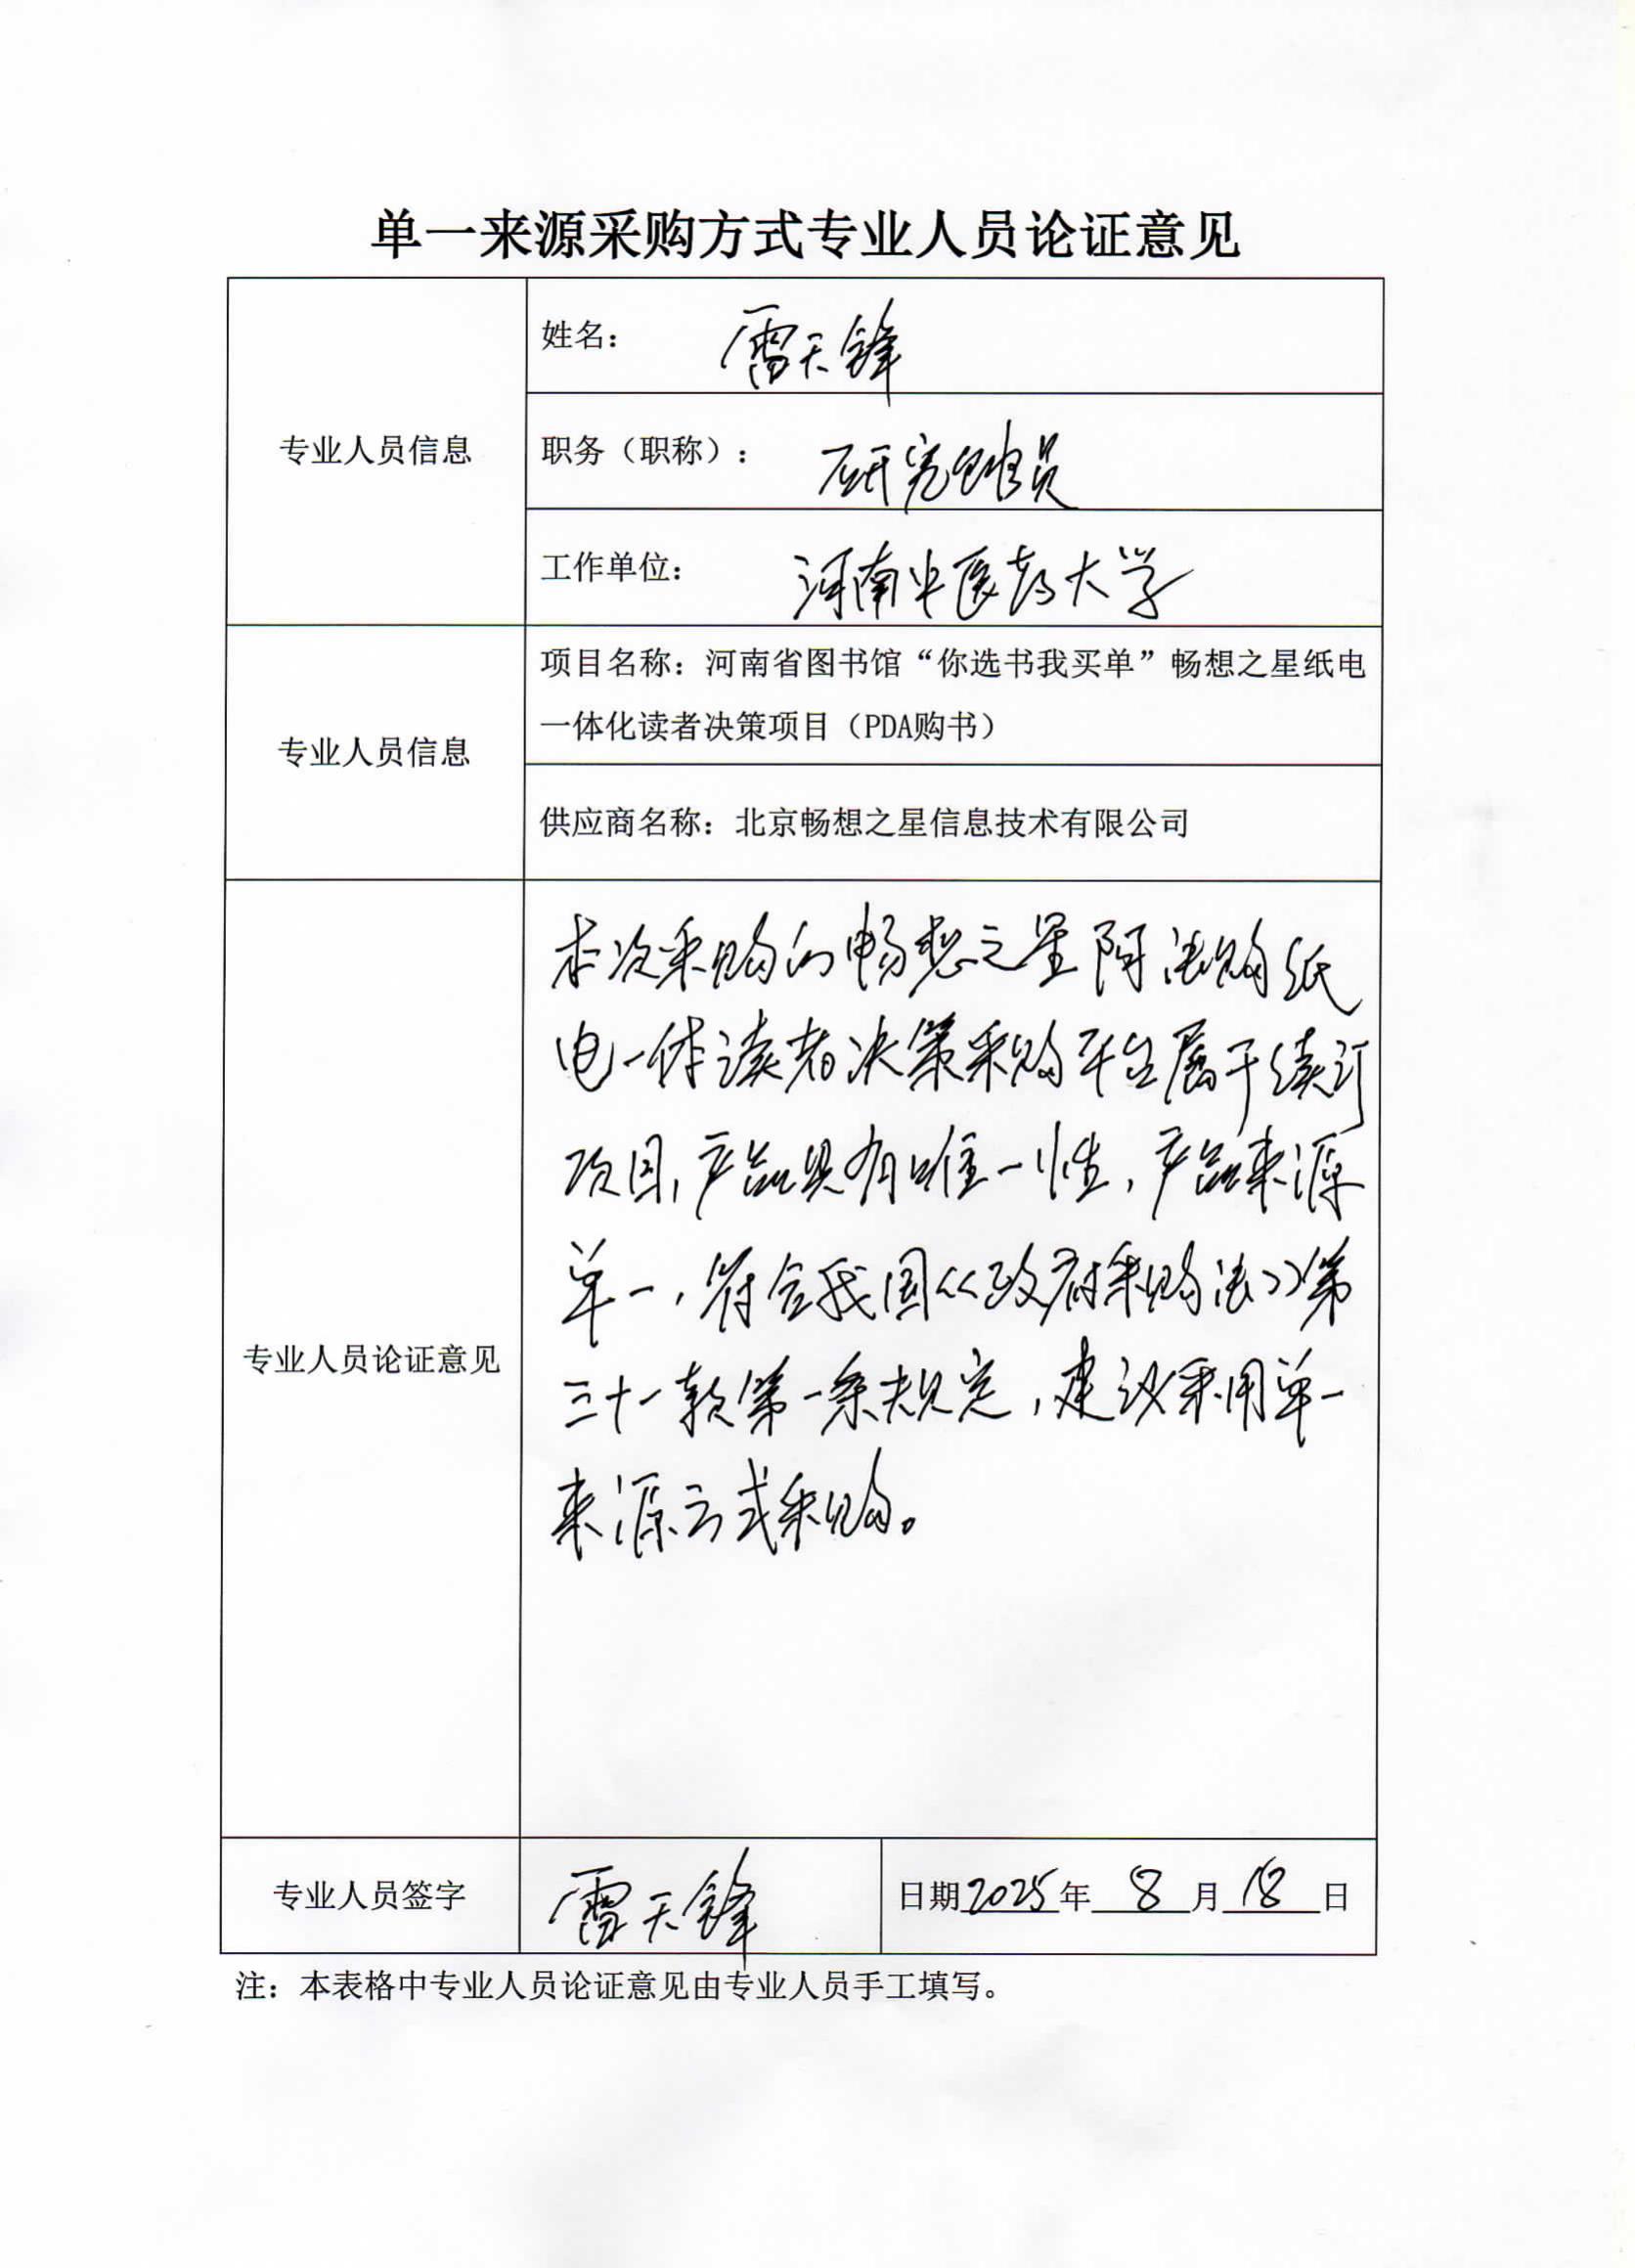 单一来源采购方式专业人员论证意见
专业人员信息
姓名： 雷天锋
职务（职称）： 研究馆员
工作单位： 河南中医药大学
专业人员信息
项目名称：河南省图书馆“你选书我买单”畅想之星纸电
一体化读者决策项目（PDA购书）
供应商名称：北京畅想之星信息技术有限公司
专业人员论证意见
本次采购的畅想之星阿法购纸
电一体读者决策采购平台属于续订
项目，产品具有唯一性，产品来源
单一，符合我国《政府采购法》第
三十一款第一条规定，建议采用单一
来源方式采购。
专业人员签字 雷天锋 日期2025年 8 月 18 日
注：本表格中专业人员论证意见由专业人员手工填写。